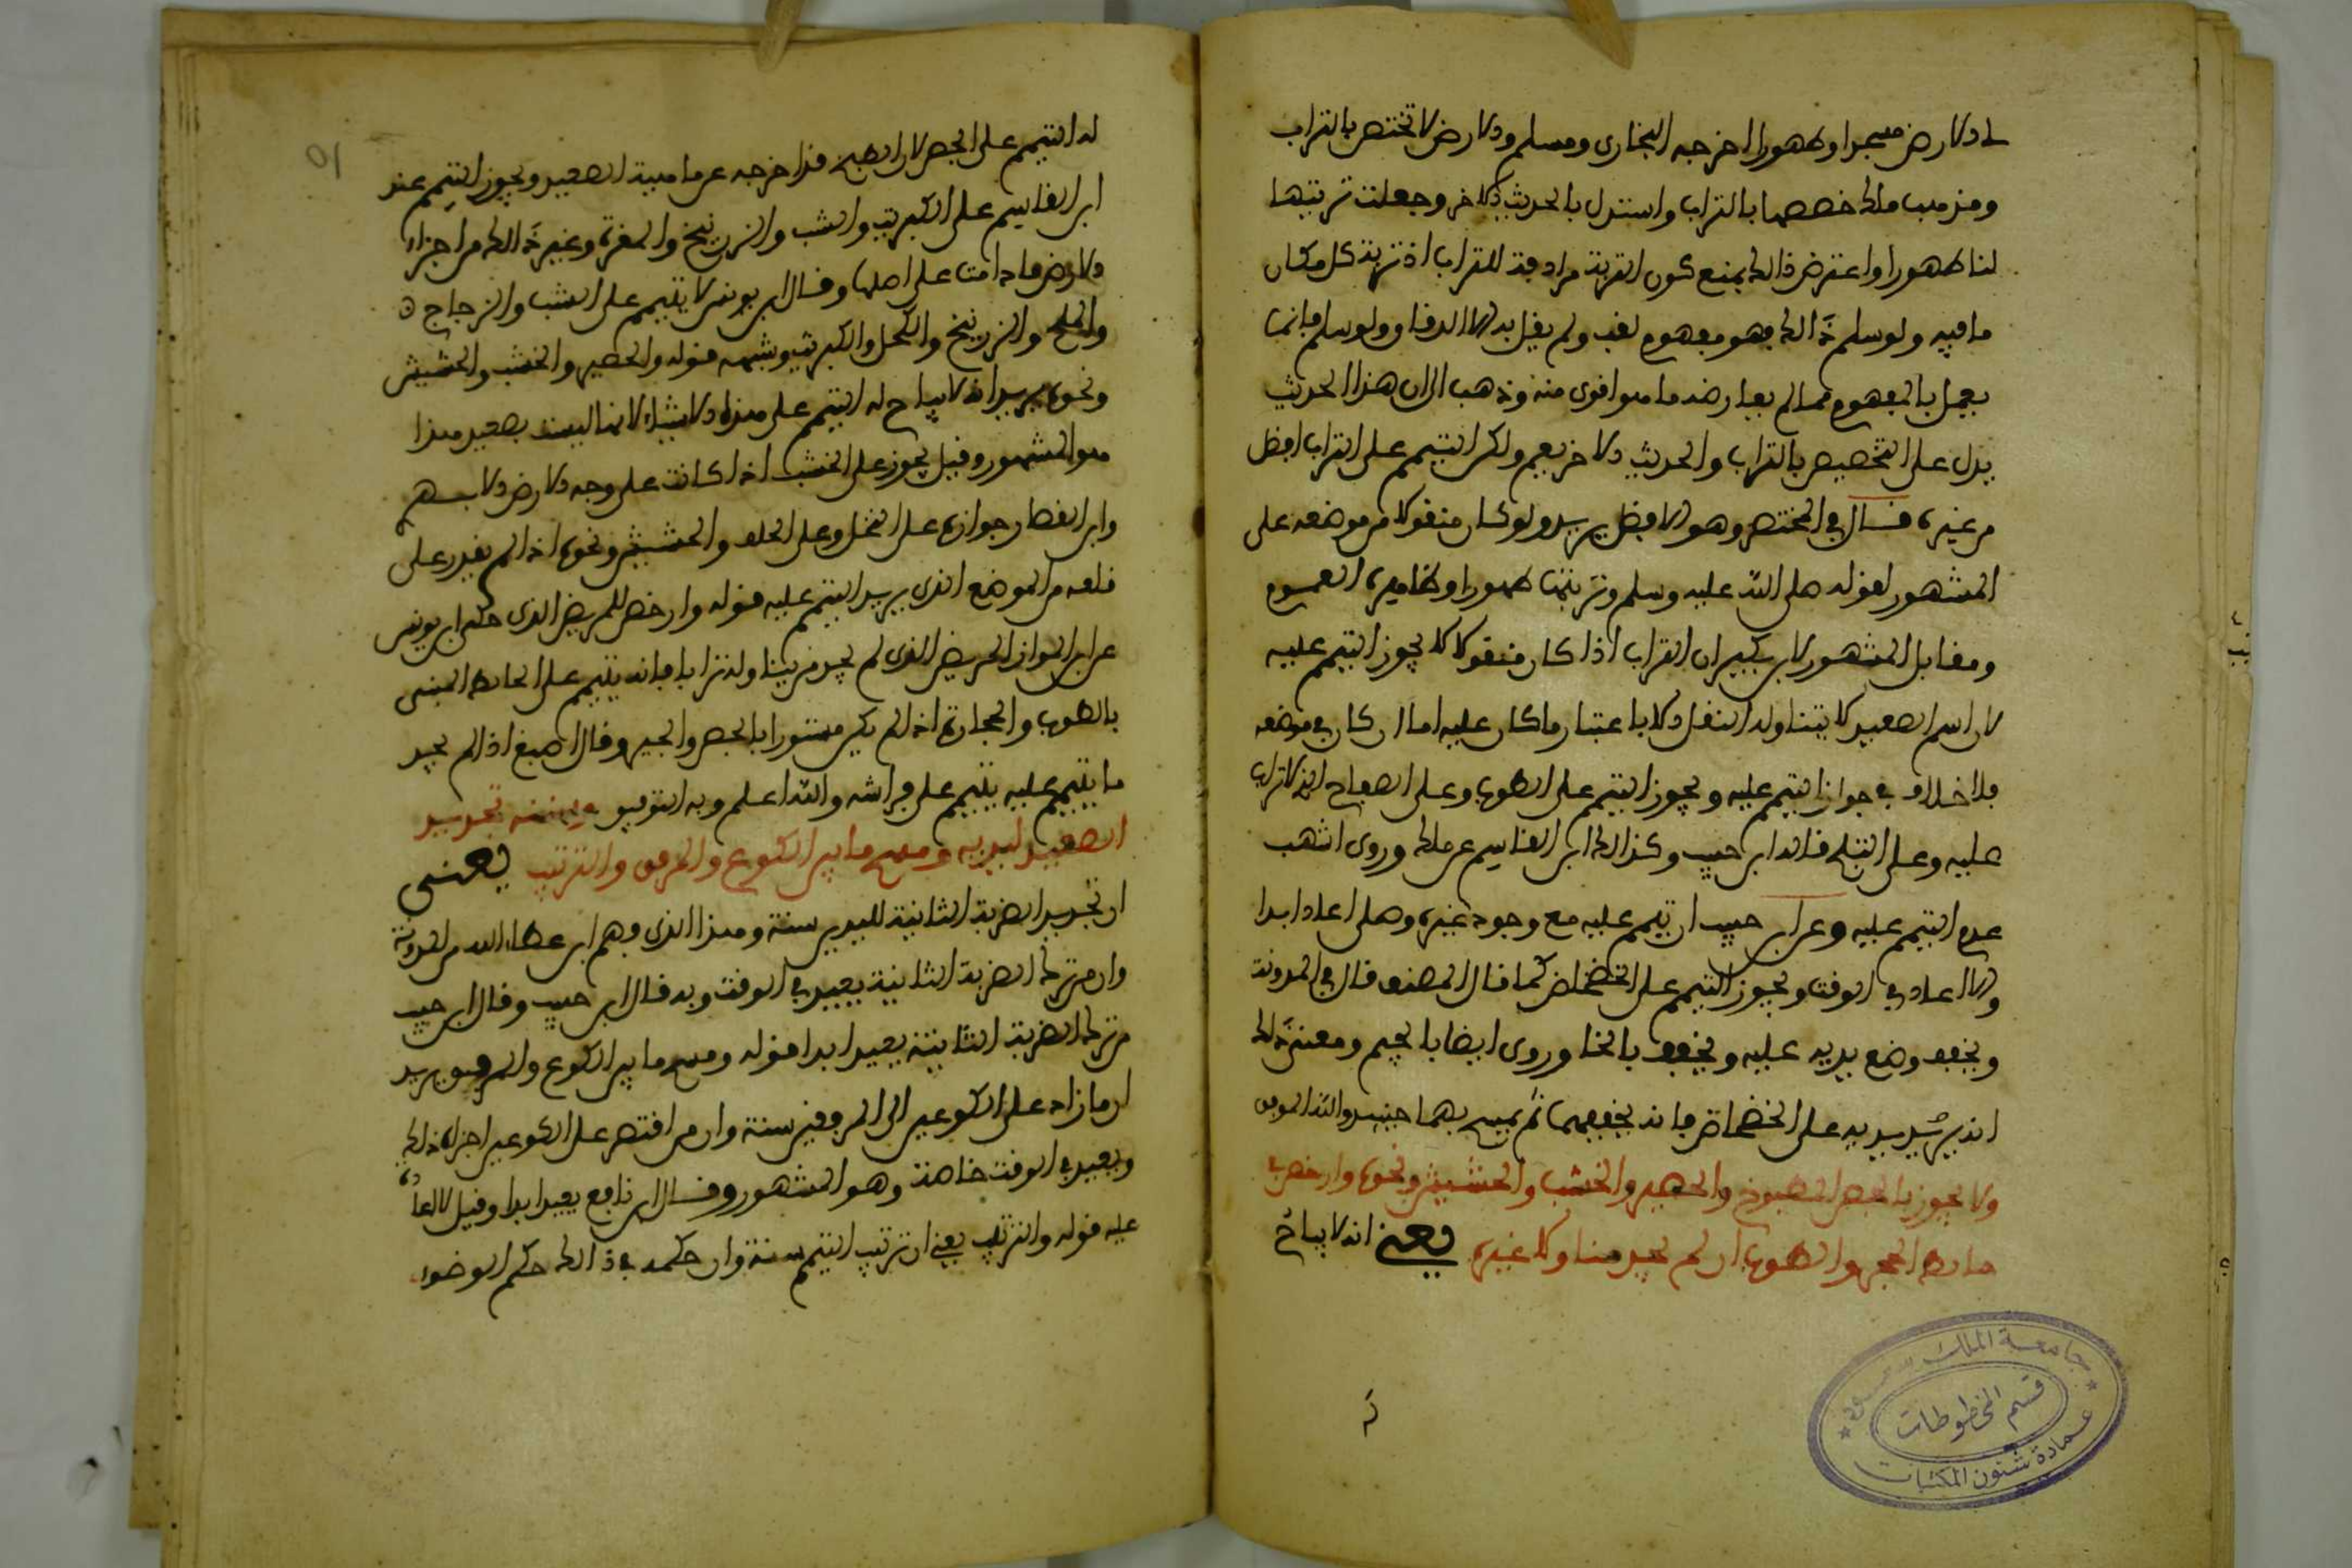 لي الارض مسجدا وطهورا اخرجه البخاري ومسلم والارض لا تختص بالتراب
ومن مذهب مالك خصصها بالتراب واستدل بالحديث الاخر وجعلت تربتها
لنا طهورا واعترض ذالك بمنع كون التربة مرادفة للتراب اذ تربة كل مكان
ما فيه ولو سلم ذالك فهو مفهوم لقب ولم يقل به الا الدقاق ولو سلم فانما
يعمل بالمفهوم ما لم يعارضه ما هو اقوى منه وذهب الى ان هذا الحديث
يدل على التخصيص بالتراب والحديث الاخر يعم ولكن التيمم على التراب افضل
من غيره قال في المختصر وهو الافضل يريد ولو كان منقولا من موضعه على
المشهور لقوله صلى الله عليه وسلم وتربتها طهورا وظاهره العموم
ومقابل المشهور لابن بكير ان التراب اذا كان منقولا لا يجوز التيمم عليه
لان اسم الصعيد لا يتناوله النقل الا باعتبار ما كان عليه اما ان كان في موضعه
فلا خلاف في جواز التيمم عليه ويجوز التيمم على الطوب وعلى الصفاح الذي لا تراب
عليه وعلى الثلج قاله ابن حبيب وكذالك ابن القاسم عن مالك وروى اشهب
عدم التيمم عليه وعن ابن حبيب ان تيمم عليه مع وجود غيره وصلى اعاد ابدا
والا اعاد في الوقت ويجوز التيمم على الخضخاض كما قال المصنف قال في المدونة
ويخفف وضع يديه عليه ويخفف بالخا وروي ايضا بالجيم ومعنى ذالك
انه يبرد يديه على الخضخاض فانه يجففهما ثم يمسح بهما جنبيه والله الموفق
ولا يجوز بالجص المطبوخ والحصير والخشب والحشيش ونحوه وارخص في
حائط الحجر والطوب ان لم يجد مناولا غيره يعني انه لا يباح
له التيمم على الجص لان الطبخ قد اخرجه عن ماهية الصعيد ويجوز التيمم عند
ابن القاسم على الكبريت والشب والزرنيخ والمغرة وغير ذالك من اجزاء
الارض ما دامت على اصلها وقال ابن يونس لا يتيمم على الشب والزجاج
والملح والزرنيخ والكحل والكبريت وشبهه قوله والحصير والخشب والحشيش
ونحوه يريد انه لا يباح له التيمم على هذه الاشياء لانها ليست بصعيد هذا
هو المشهور وقيل يجوز على الخشب اذا كانت على وجه الارض
وابن القصار جوازه على النخل وعلى الحلفا والحشيش ونحوه اذا لم يقدر على
قلعه من الموضع الذي يريد التيمم عليه قوله وارخص للمريض الذي حكى ابن يونس
عن ابن المواز المريض الذي لم يجد من يناوله ترابا فانه يتيمم على الحائط المبني
بالطوب والحجارة اذا لم يكن مستورا بالجص والجير وقال اصبغ اذا لم يجد
ما يتيمم عليه يتيمم على فراشه والله اعلم وبه التوفيق وسننه تجديد
الصعيد ليديه ومسح ما بين الكوع والمرفق والترتيب يعني
ان تجديد الضربة الثانية لليدين سنة وهذا الذي وهم ابن عطاء الله من المدونة
وان من ترك الضربة الثانية يعيد في الوقت وبه قال ابن حبيب وقال ابن حبيب
من ترك الضربة الثانية يعيد ابدا قوله ومسح ما بين الكوع والمرفق يريد
ان ما زاد على الكوعين الى المرفقين سنة وان من اقتصر على الكوعين اجزاه ذلك
ويعيد في الوقت خاصة وهو المشهور وقال ابن نافع يعيد ابدا وقيل لا اعادة
عليه قوله والترتيب يعني ان ترتيب التيمم سنة وان حكمه في ذالك حكم الوضوء
جامعة الملك سعود
قسم المخطوطات
عمادة شئون المكتبات